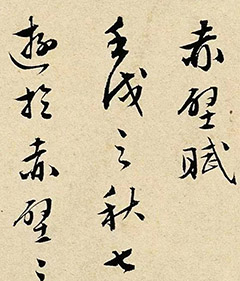 赤壁賦
壬戌之秋七
遊於赤壁之